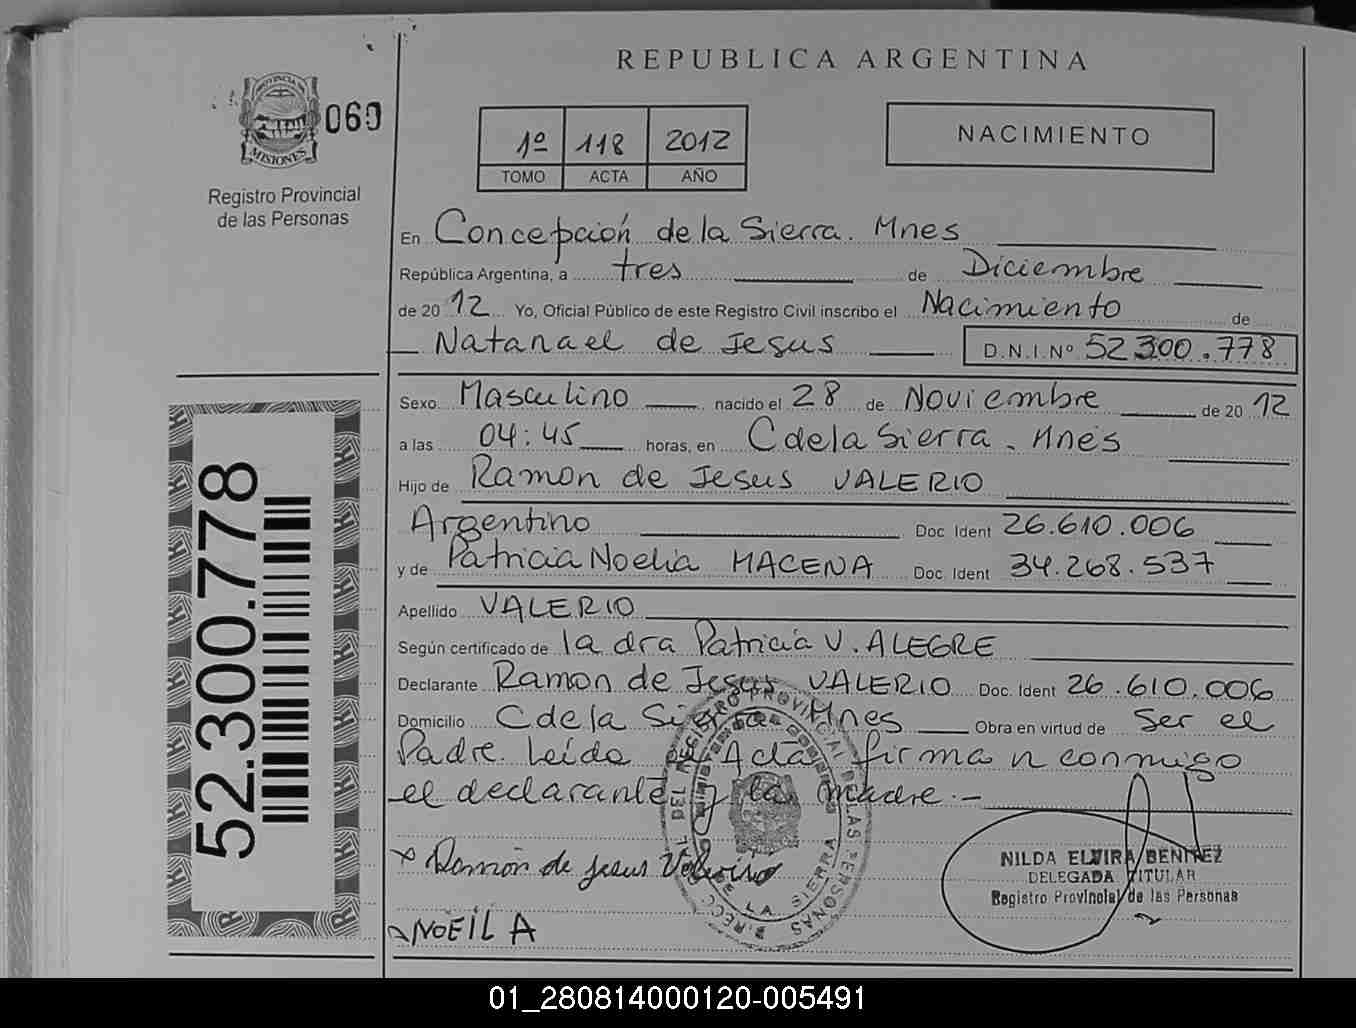 REPUBLICA ARGENTINA
PROVINCIA DE
MISIONES
060
Registro Provincial
de las Personas
1º 118 2012
TOMO ACTA AÑO
NACIMIENTO
En Concepción de la Sierra. Mnes
República Argentina, a tres de Diciembre
de 2012 Yo, Oficial Público de este Registro Civil inscribo el Nacimiento de
Natanael de Jesus D.N.I.Nº 52300.778
Sexo Masculino nacido el 28 de Noviembre de 2012
a las 04:45 horas, en C de la Sierra. Mnes
Hijo de Ramon de Jesus VALERIO
Argentino Doc. Ident 26.610.006
y de Patricia Noelia MACENA Doc. Ident 34.268.537
Apellido VALERIO
Según certificado de la dra Patricia V. ALEGRE
Declarante Ramon de Jesus VALERIO Doc. Ident 26.610.006
Domicilio C de la Sierra Mnes Obra en virtud de ser el
Padre. Leída el Acta firman conmigo
el declarante y la madre.-
52.300.778
x Ramón de jesus Valerio
NOEILA
DEL REGISTRO PROVINCIAL DE LAS PERSONAS
DE LA SIERRA
NILDA ELVIRA BENITEZ
DELEGADA TITULAR
Registro Provincial de las Personas
01_280814000120-005491